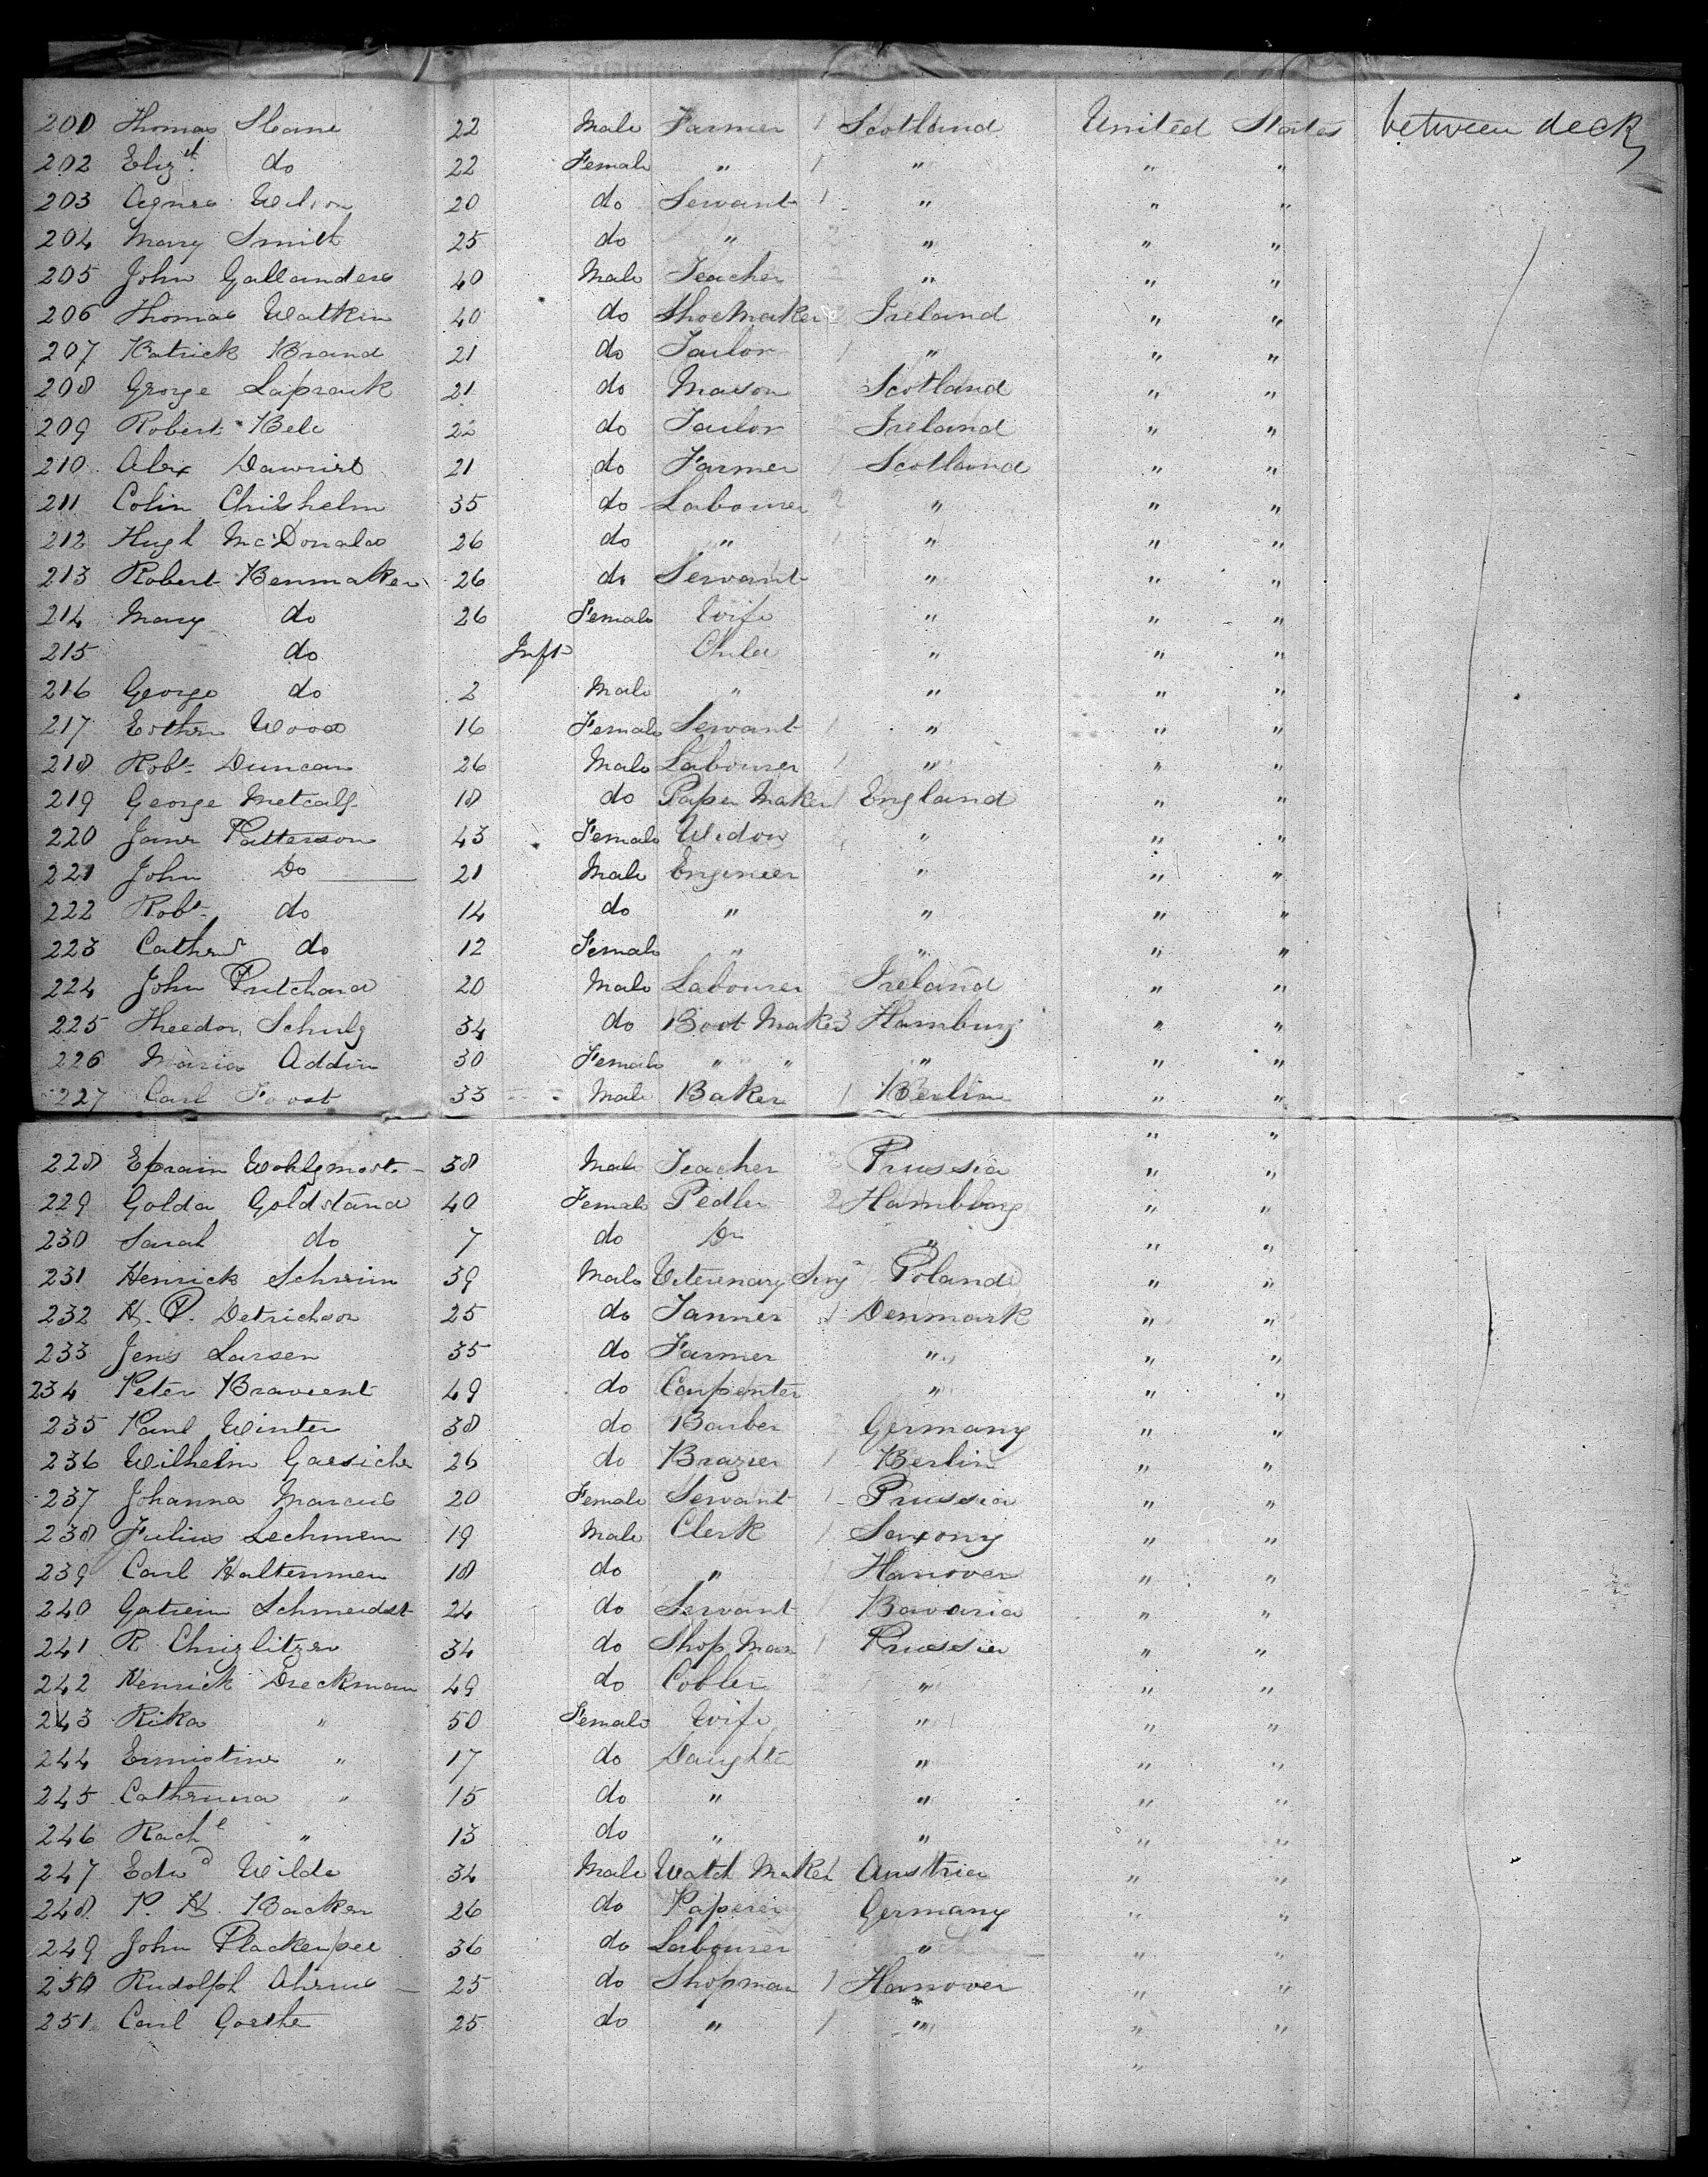 201 Thomas Sloane 22 Male Farmer 1 Scotland United States between deck
202 Eliz.th do 22 Female " 1 " " "
203 Agnes Wilson 20 do Servant 1 " " "
204 Mary Smith 25 do " 2 " " "
205 John Gallanders 40 Male Teacher 2 " " "
206 Thomas Watkin 40 do Shoemaker Ireland " "
207 Patrick Brand 21 do Tailor 1 " " "
208 George Laprauk 21 do Mason Scotland " "
209 Robert Bell 22 do Tailor Ireland " "
210 Alex 21 do Farmer 1 Scotland " "
211 Colin Chisholm 35 do Labourer 2 " " "
212 Hugh McDonald 26 do " 1 " " "
213 Robert Benmaker 26 do Servant " " "
214 Mary do 26 Female Wife " " "
215 do Inft Child " " "
216 George do 2 Male " " " "
217 Esther Wood 16 Female Servant 1 " " "
218 Robt Duncan 26 Male Labourer 1 " " "
219 George Metcalf 18 do Paper Maker 1 England " "
220 Jane Patterson 43 Female Widow " " "
221 John Do 21 Male Engineer " " "
222 Robt do 14 do " " " "
223 Cathr do 12 Female " " " "
224 John Pritchard 20 Male Labourer Ireland " "
225 Theodor Schulz 34 do Boot Maker 3 Hamburg " "
226 Maria Addin 30 Female " " " " "
227 Carl Faost 33 Male Baker 1 Berlin " "
" "
228 Eprain 38 Male Teacher 2 Prussia " "
229 Golda Goldstand 40 Female Pedler 2 Hambborg " "
230 Sarah do 7 do Do " " "
231 Henrick Schreim 39 Male Veterenary Surg Poland " "
232 H. P. Detrichson 25 do Tanner 1 Denmark " "
233 Jens Larsen 35 do Farmer " " "
234 Peter Bravient 49 do Carpenter " " "
235 Paul Winter 38 do Barber Germany " "
236 Wilhelm Gaesiche 26 do Brazier 1 Berlin " "
237 Johanna Marcus 20 Female Servant 1 Prussia " "
238 Julius Lechmem 19 Male Clerk 1 Saxony " "
239 Carl Haltenmen 18 do " Hanover " "
240 Gatrein Schmeidst 24 do Servant 1 Bavaria " "
241 R. Chrizlitzer 34 do Shop Man 1 Prussia " "
242 Henrick Dreckman 49 do Cobler 2 " " "
243 Rika " 50 Female Wife " " "
244 Ernistine " 17 do Daughter " " "
245 Cathrina " 15 do " " " "
246 Rachl " 13 do " " " "
247 Edwd Wilde 34 Male Watch Maker 1 Austria " "
248 P. H. Backer 26 do Germany " "
249 John 36 do Labourer " " "
250 Rudolph Ahrens 25 do Shopman 1 Hanover " "
251 Carl Goethe 25 do " 1 " " "
"